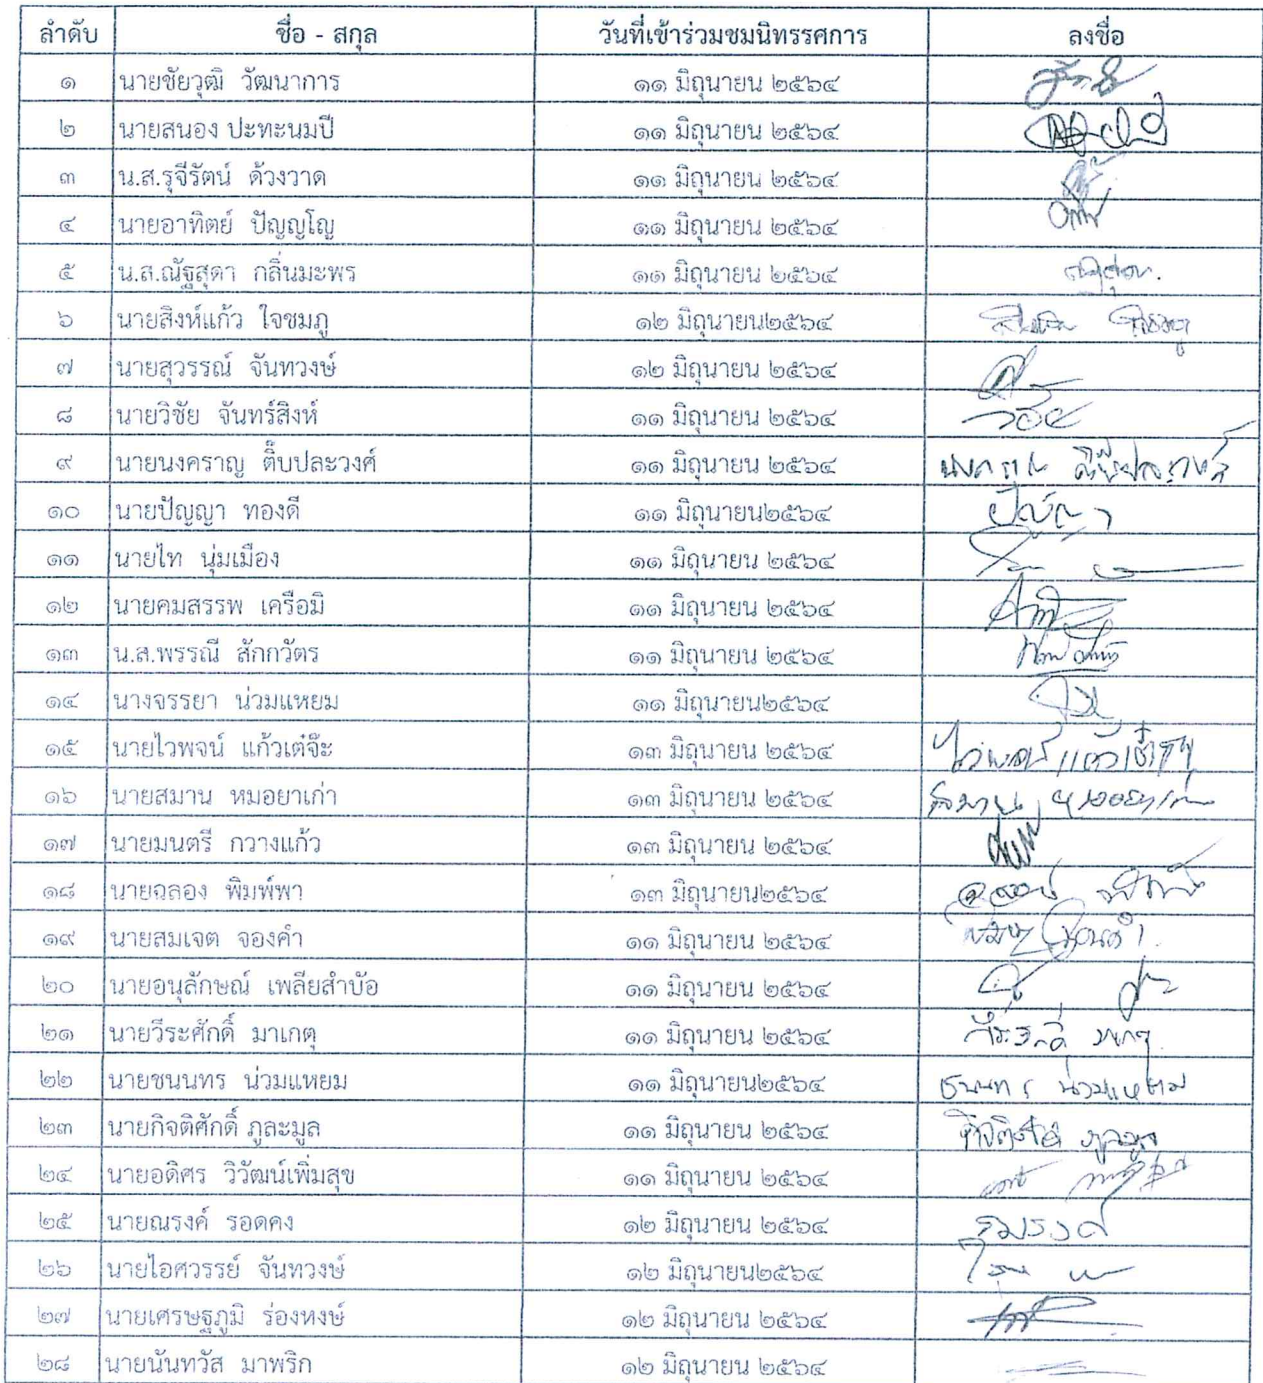 ลำดับ ชื่อ - สกุล วันที่เข้าร่วมชมนิทรรศการ ลงชื่อ
๑ นายชัยวุฒิ วัฒนาการ ๑๑ มิถุนายน ๒๕๖๔
๒ นายสนอง ปะทะนมปี ๑๑ มิถุนายน ๒๕๖๔
๓ น.ส.รุจีรัตน์ ด้วงวาด ๑๑ มิถุนายน ๒๕๖๔
๔ นายอาทิตย์ ปัญญโญ ๑๑ มิถุนายน ๒๕๖๔
๕ น.ส.ณัฐสุดา กลิ่นมะพร ๑๑ มิถุนายน ๒๕๖๔
๖ นายสิงห์แก้ว ใจชมภู ๑๒ มิถุนายน๒๕๖๔
๗ นายสุวรรณ์ จันทวงษ์ ๑๒ มิถุนายน ๒๕๖๔
๘ นายวิชัย จันทร์สิงห์ ๑๑ มิถุนายน ๒๕๖๔
๙ นายนงคราญ ติ๊บปละวงศ์ ๑๑ มิถุนายน ๒๕๖๔
๑๐ นายปัญญา ทองดี ๑๑ มิถุนายน๒๕๖๔ ปัญญา
๑๑ นายไท นุ่มเมือง ๑๑ มิถุนายน ๒๕๖๔
๑๒ นายคมสรรพ เครือมิ ๑๑ มิถุนายน ๒๕๖๔
๑๓ น.ส.พรรณี สักกวัตร ๑๑ มิถุนายน ๒๕๖๔
๑๔ นางจรรยา น่วมแหยม ๑๑ มิถุนายน๒๕๖๔
๑๕ นายไวพจน์ แก้วเต๋จ๊ะ ๑๓ มิถุนายน ๒๕๖๔
๑๖ นายสมาน หมอยาเก่า ๑๓ มิถุนายน ๒๕๖๔ สมาน หมอยาเก่า
๑๗ นายมนตรี กวางแก้ว ๑๓ มิถุนายน ๒๕๖๔
๑๘ นายฉลอง พิมพ์พา ๑๓ มิถุนายน๒๕๖๔
๑๙ นายสมเจต จองคำ ๑๑ มิถุนายน ๒๕๖๔
๒๐ นายอนุลักษณ์ เพลียสำบ้อ ๑๑ มิถุนายน ๒๕๖๔
๒๑ นายวีระศักดิ์ มาเกตุ ๑๑ มิถุนายน ๒๕๖๔
๒๒ นายชนนทร น่วมแหยม ๑๑ มิถุนายน๒๕๖๔ ชนนทร น่วมแหยม
๒๓ นายกิจติศักดิ์ ภูละมูล ๑๑ มิถุนายน ๒๕๖๔
๒๔ นายอดิศร วิวัฒน์เพิ่มสุข ๑๑ มิถุนายน ๒๕๖๔
๒๕ นายณรงค์ รอดคง ๑๒ มิถุนายน ๒๕๖๔
๒๖ นายไอศวรรย์ จันทวงษ์ ๑๒ มิถุนายน๒๕๖๔
๒๗ นายเศรษฐภูมิ ร่องหงษ์ ๑๒ มิถุนายน ๒๕๖๔
๒๘ นายนันทวัส มาพริก ๑๒ มิถุนายน ๒๕๖๔